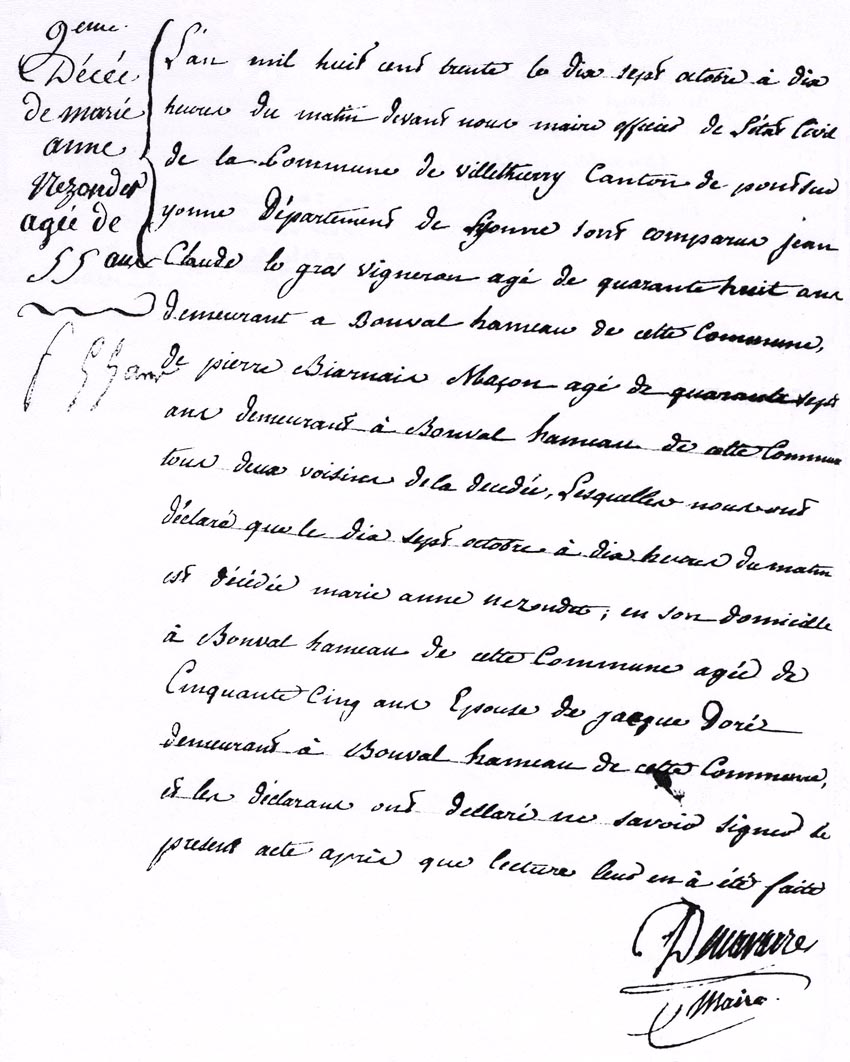 9eme
Décée
de marié
anne
Nezondet
agée de
55 ans
f 55 ans
L'an mil huit cent trente le dix sept octobre à dix
heures du matin devant nous maire officier de L'état Civil
de la Commune de villethierry Canton de pont sur
yonne Département de Lyonne sont comparus jean
Claude le gros vigneron agé de quarante huit ans
demeurant a Bonval hameau de cette Commune,
de pierre Biarnais Maçon agé de quarante sept
ans demeurant à Bonval hameau de cette Commune
tous deux voisines de la decedée, Lesquelles nous ont
déclaré que le dix sept octobre à dix heures du matin
est décédée marie anne nezondet ; en son domicille
à Bonval hameau de cette Commune agée de
Cinquante Cinq ans Epouse de jacque Doré
demeurant à Bonval hameau de cette Commune,
et les déclarans ont dellaré ne savoir signer le
present acte après que lecture leur en à été faite
Denavarre
Maire